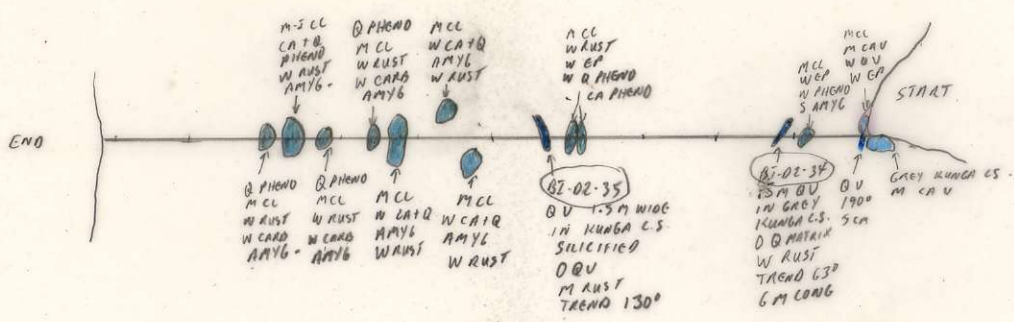 END
M-S CL
CA+Q
PHENO
W RUST
AMYG.
Q PHENO
M CL
W RUST
W CARB
AMYG
M CL
W CA+Q
AMYG
W RUST
M CL
W RUST
W EP
W Q PHENO
CA PHENO
M CL
W EP
W PHENO
S AMYG
M CL
M CAV
W QV
W EP
START
Q PHENO
M CL
W RUST
W CARB
AMYG.
Q PHENO
M CL
W RUST
W CARB
AMYG
M CL
W CA+Q
AMYG
W RUST
M CL
W CA+Q
AMYG
W RUST
BI-02-35
QV 1.5 M WIDE
IN KUNGA C.S.
SILICIFIED
O QV
M RUST
TREND 130°
BI-02-34
1.5M QV
IN GREY
KUNGA C.S.
O Q MATRIX
W RUST
TREND 63°
6 M LONG
QV
190°
5cm
GREY KUNGA C.S.
M CAV